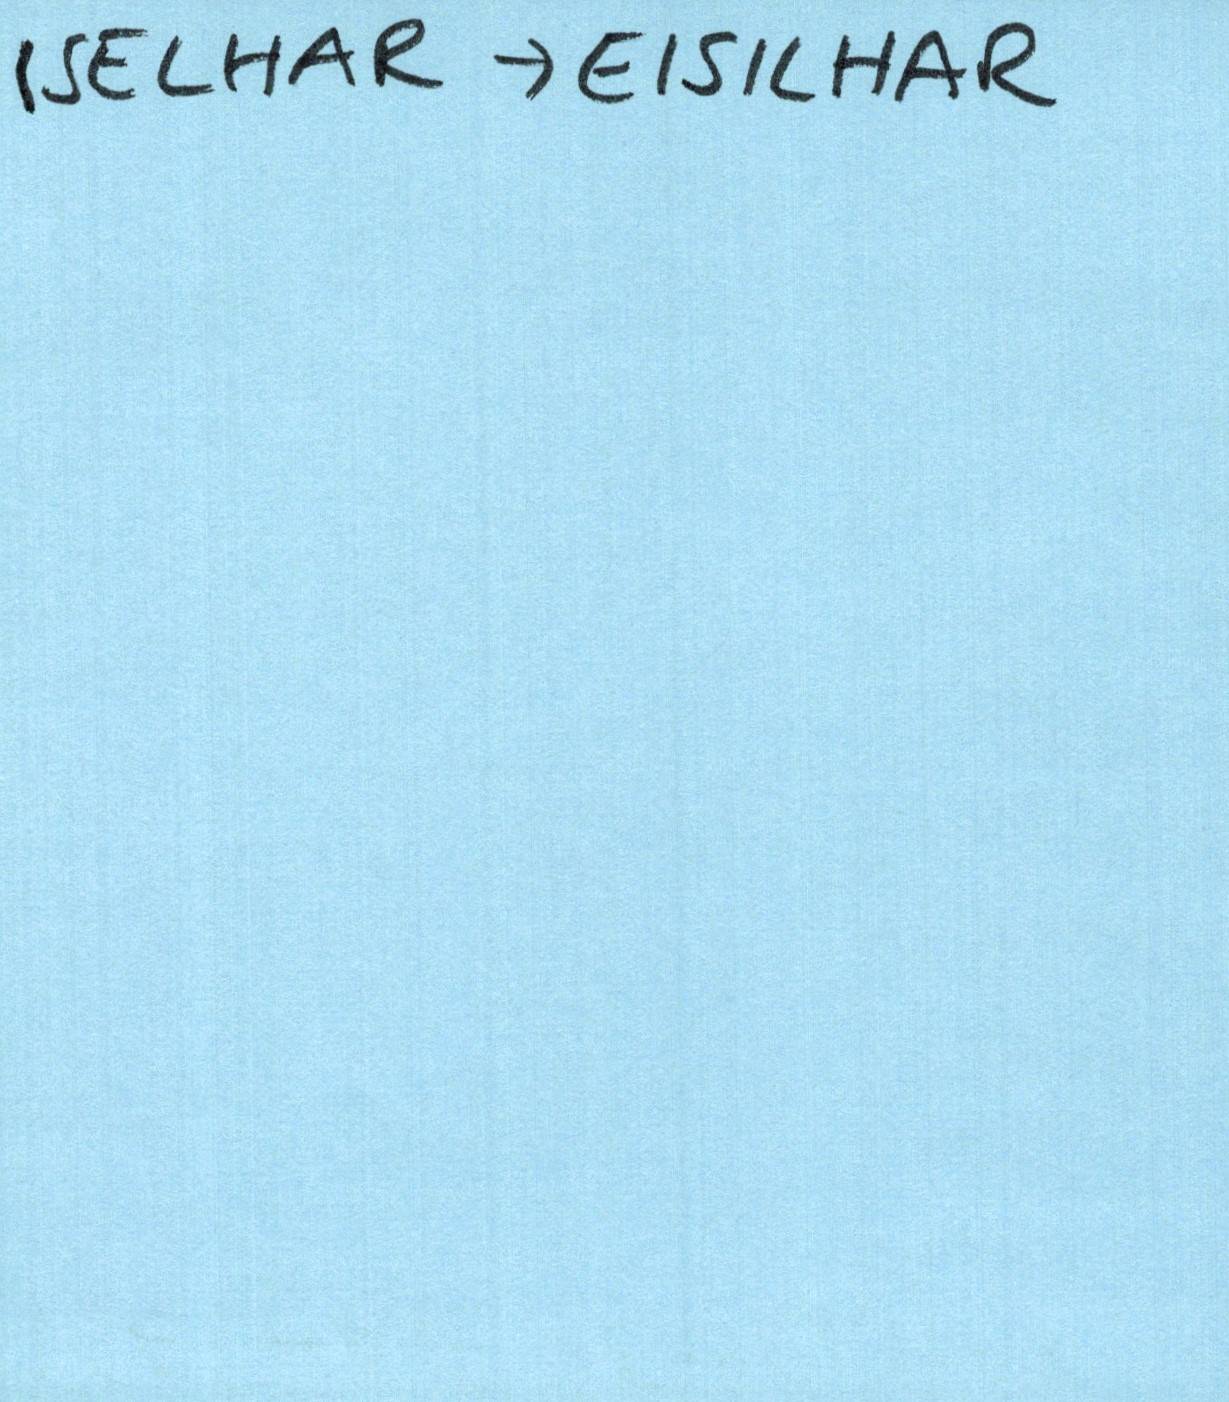 ISELHAR → EISILHAR